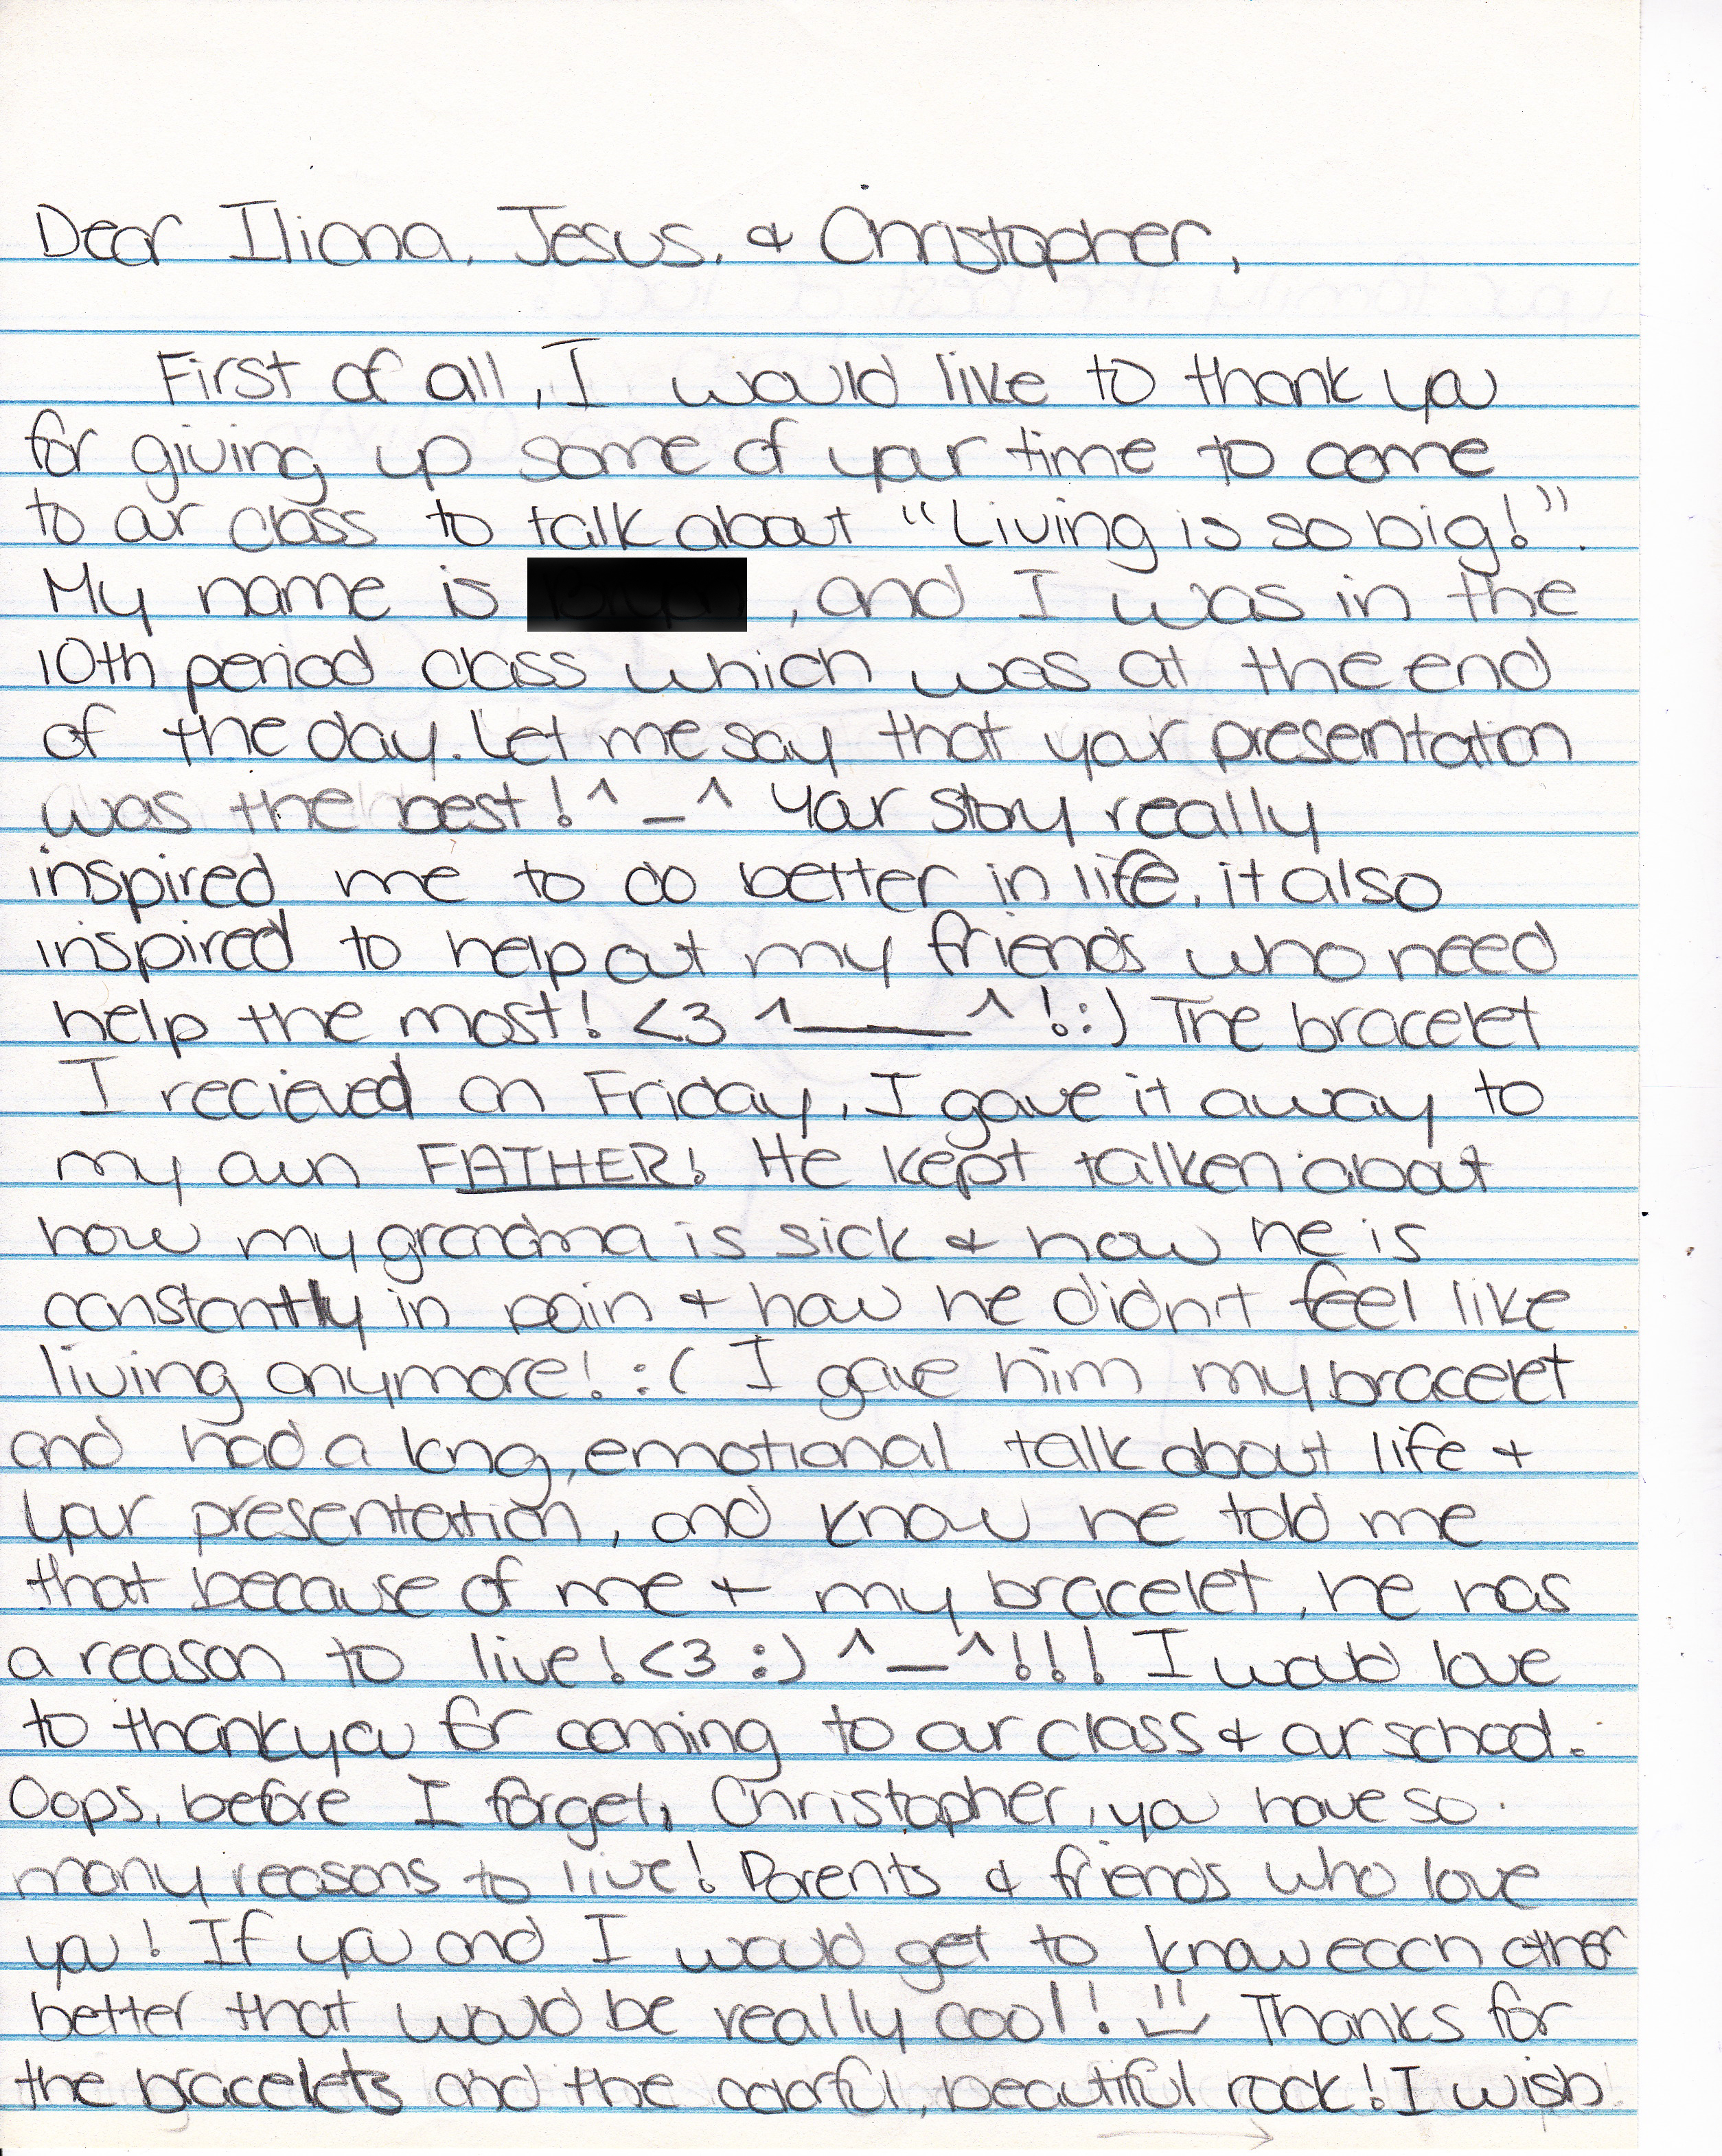 Dear Iliana, Jesus, & Christopher,
First of all, I would like to thank you
for giving up some of your time to come
to our class to talk about "Living is so big!".
My name is , and I was in the
10th period class which was at the end
of the day. Let me say that your presentation
was the best! ^_^ Your story really
inspired me to do better in life, it also
inspired to help out my friends who need
help the most! <3 ^____^ !:) The bracelet
I recieved on Friday, I gave it away to
my own FATHER! He kept talken about
how my grandma is sick & how he is
constantly in pain & how he didn't feel like
living anymore! :( I gave him my bracelet
and had a long, emotional talk about life +
your presentation, and know he told me
that because of me + my bracelet, he has
a reason to live! <3 :) ^_^!!! I would love
to thank you for coming to our class & our school.
Oops, before I forget, Christopher, you have so
many reasons to live! Parents & friends who love
you! If you and I would get to know each other
better that would be really cool! Thanks for
the bracelets and the colorful, beautiful rock! I wish